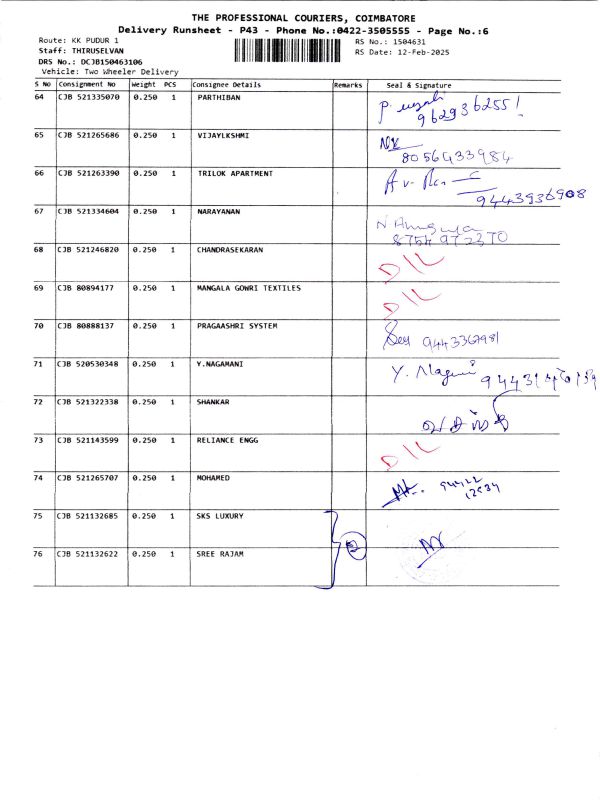 THE PROFESSIONAL COURIERS, COIMBATORE
Delivery Runsheet - P43 - Phone No.:0422-3505555 - Page No.:6
Route: KK PUDUR 1
RS No.: 1504631
Staff: THIRUSELVAN
RS Date: 12-Feb-2025
DRS No.: DCJB150463106
Vehicle: Two Wheeler Delivery
S No Consignment No Weight PCS Consignee Details Remarks Seal & Signature
64 CJB 521335070 0.250 1 PARTHIBAN
9629362551
65 CJB 521265686 0.250 1 VIJAYLKSHMI
8056433984
66 CJB 521263390 0.250 1 TRILOK APARTMENT
9443936908
67 CJB 521334604 0.250 1 NARAYANAN
8754972370
68 CJB 521246820 0.250 1 CHANDRASEKARAN D/L
69 CJB 80894177 0.250 1 MANGALA GOWRI TEXTILES D/L
70 CJB 80888137 0.250 1 PRAGAASHRI SYSTEM
71 CJB 520530348 0.250 1 Y.NAGAMANI Y. Nagamani
72 CJB 521322338 0.250 1 SHANKAR
73 CJB 521143599 0.250 1 RELIANCE ENGG D/L
74 CJB 521265707 0.250 1 MOHAMED
75 CJB 521132685 0.250 1 SKS LUXURY
2
76 CJB 521132622 0.250 1 SREE RAJAM